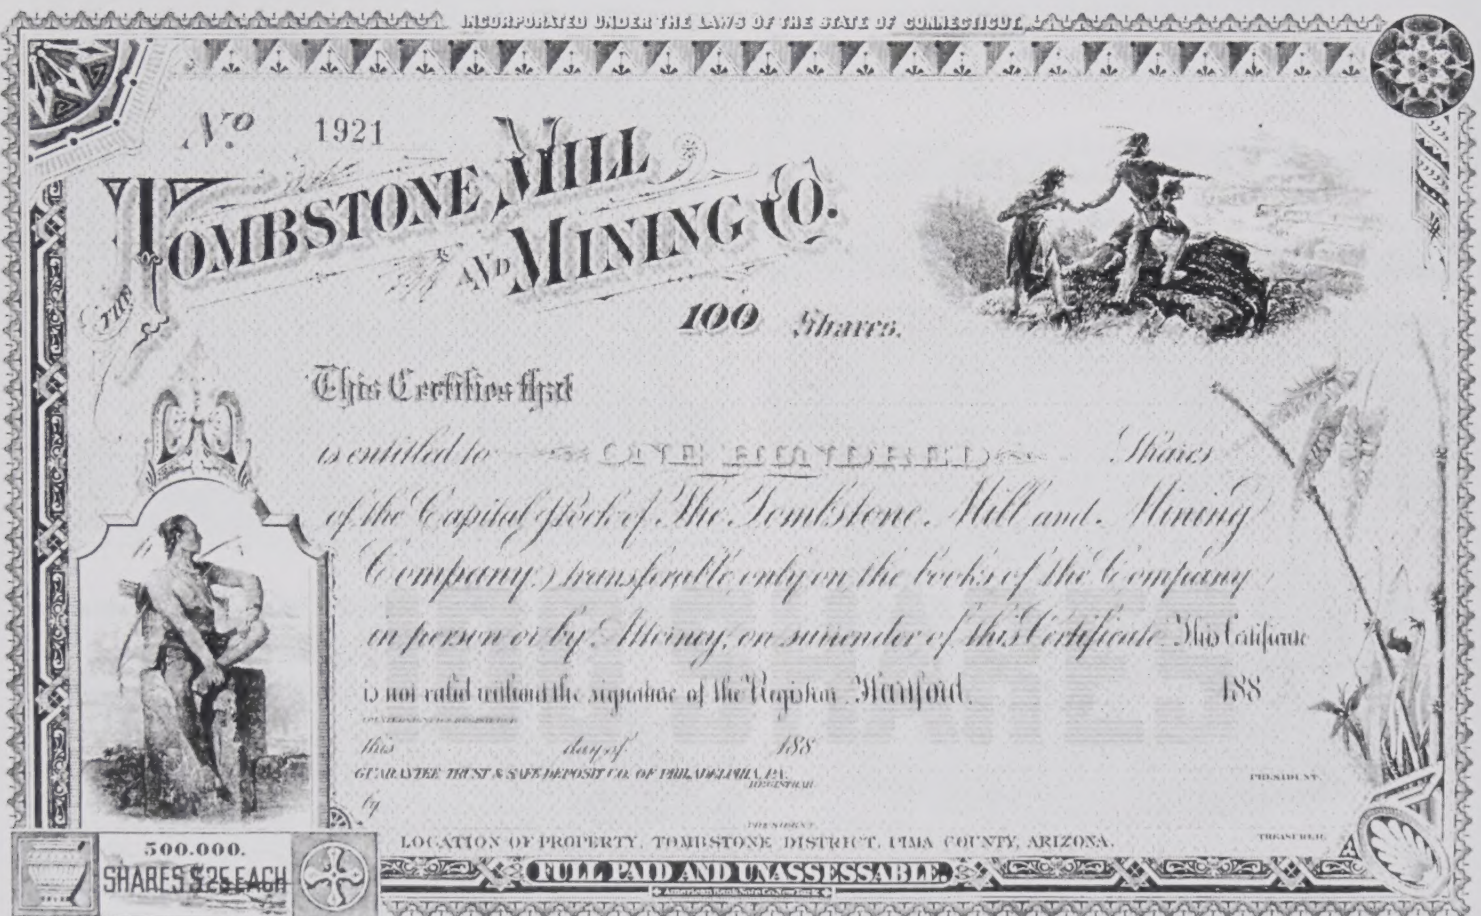 INCORPORATED UNDER THE LAWS OF THE STATE OF CONNECTICUT.
No. 1921
THE TOMBSTONE MILL
AND MINING CO.
100 Shares.
This Certifies that
is entitled to ONE HUNDRED Shares
of the Capital Stock of The Tombstone Mill and Mining
Company, transferable only on the books of the Company
in person or by Attorney, on surrender of this Certificate. This Certificate
is not valid without the signature of the Registrar. Hartford, 188
COUNTERSIGNED & REGISTERED
this day of 188
GUARANTEE TRUST & SAFE DEPOSIT CO. OF PHILADELPHIA, PA.
REGISTRAR
PRESIDENT.
by
PRESIDENT.
TREASURER.
LOCATION OF PROPERTY, TOMBSTONE DISTRICT, PIMA COUNTY, ARIZONA.
500.000.
SHARES $25 EACH
FULL PAID AND UNASSESSABLE.
American Bank Note Co. New York
100 SHARES